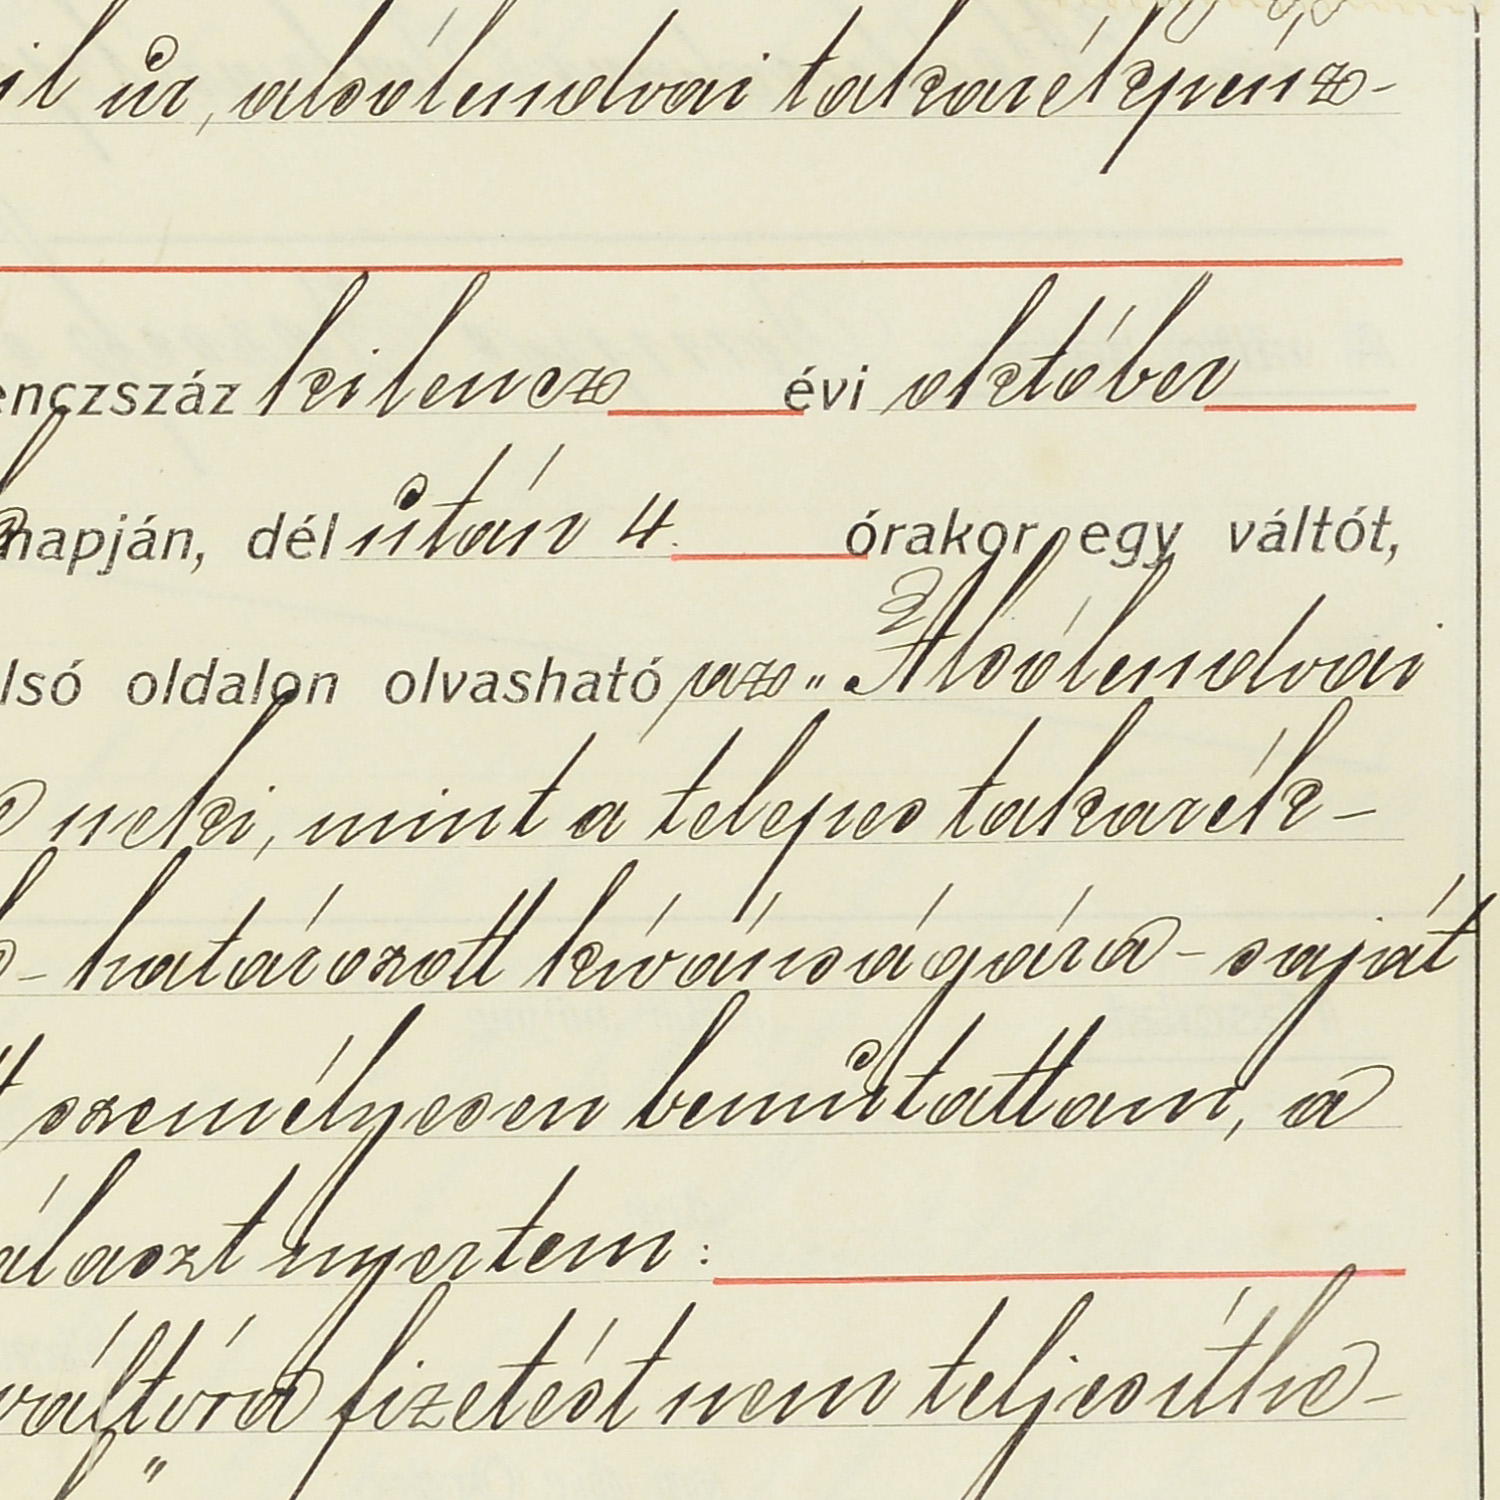 il úr, alsólendvai takarékpénz-
enczszáz kilencz évi október
napján, dél után 4. órakor egy váltót,
lsó oldalon olvasható az „Alsólendvai
neki, mint a telepes takarék-
- határozott kívánságára - saját
személyesen bemutattam, a
álaszt nyertem :
váltóra fizetést nem teljesíthe-
"